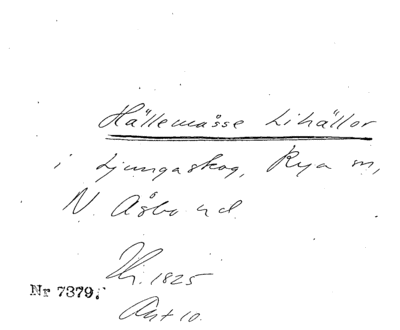 Hällemosse Lihällor
i Ljungaskog, Rya sn,
N. Åsbo hd.
Hi. 1825
Nr 7379.
Ant 10.